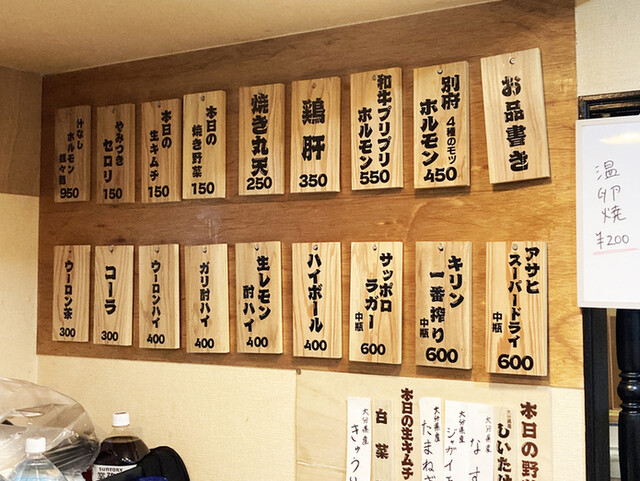 お品書き
別府
4種のモツ
ホルモン
450
和牛プリプリ
ホルモン
550
鶏肝
350
焼き丸天
250
本日の
焼き野菜
150
本日の
生キムチ
150
やみつき
セロリ
150
汁なし
ホルモン
950
アサヒ
スーパードライ
中瓶
600
キリン
一番搾り
中瓶
600
サッポロ
ラガー
中瓶
600
ハイボール
400
生レモン
酎ハイ
400
ガリ酎ハイ
400
ウーロンハイ
400
コーラ
300
ウーロン茶
300
温卵焼
¥200
本日の野
大分県産
しいたけ
大分県産
なす
大分県産
ジャガイ
たまねぎ
本日の生キムチ
白菜
大分県産
きゅうり
SUNTORY